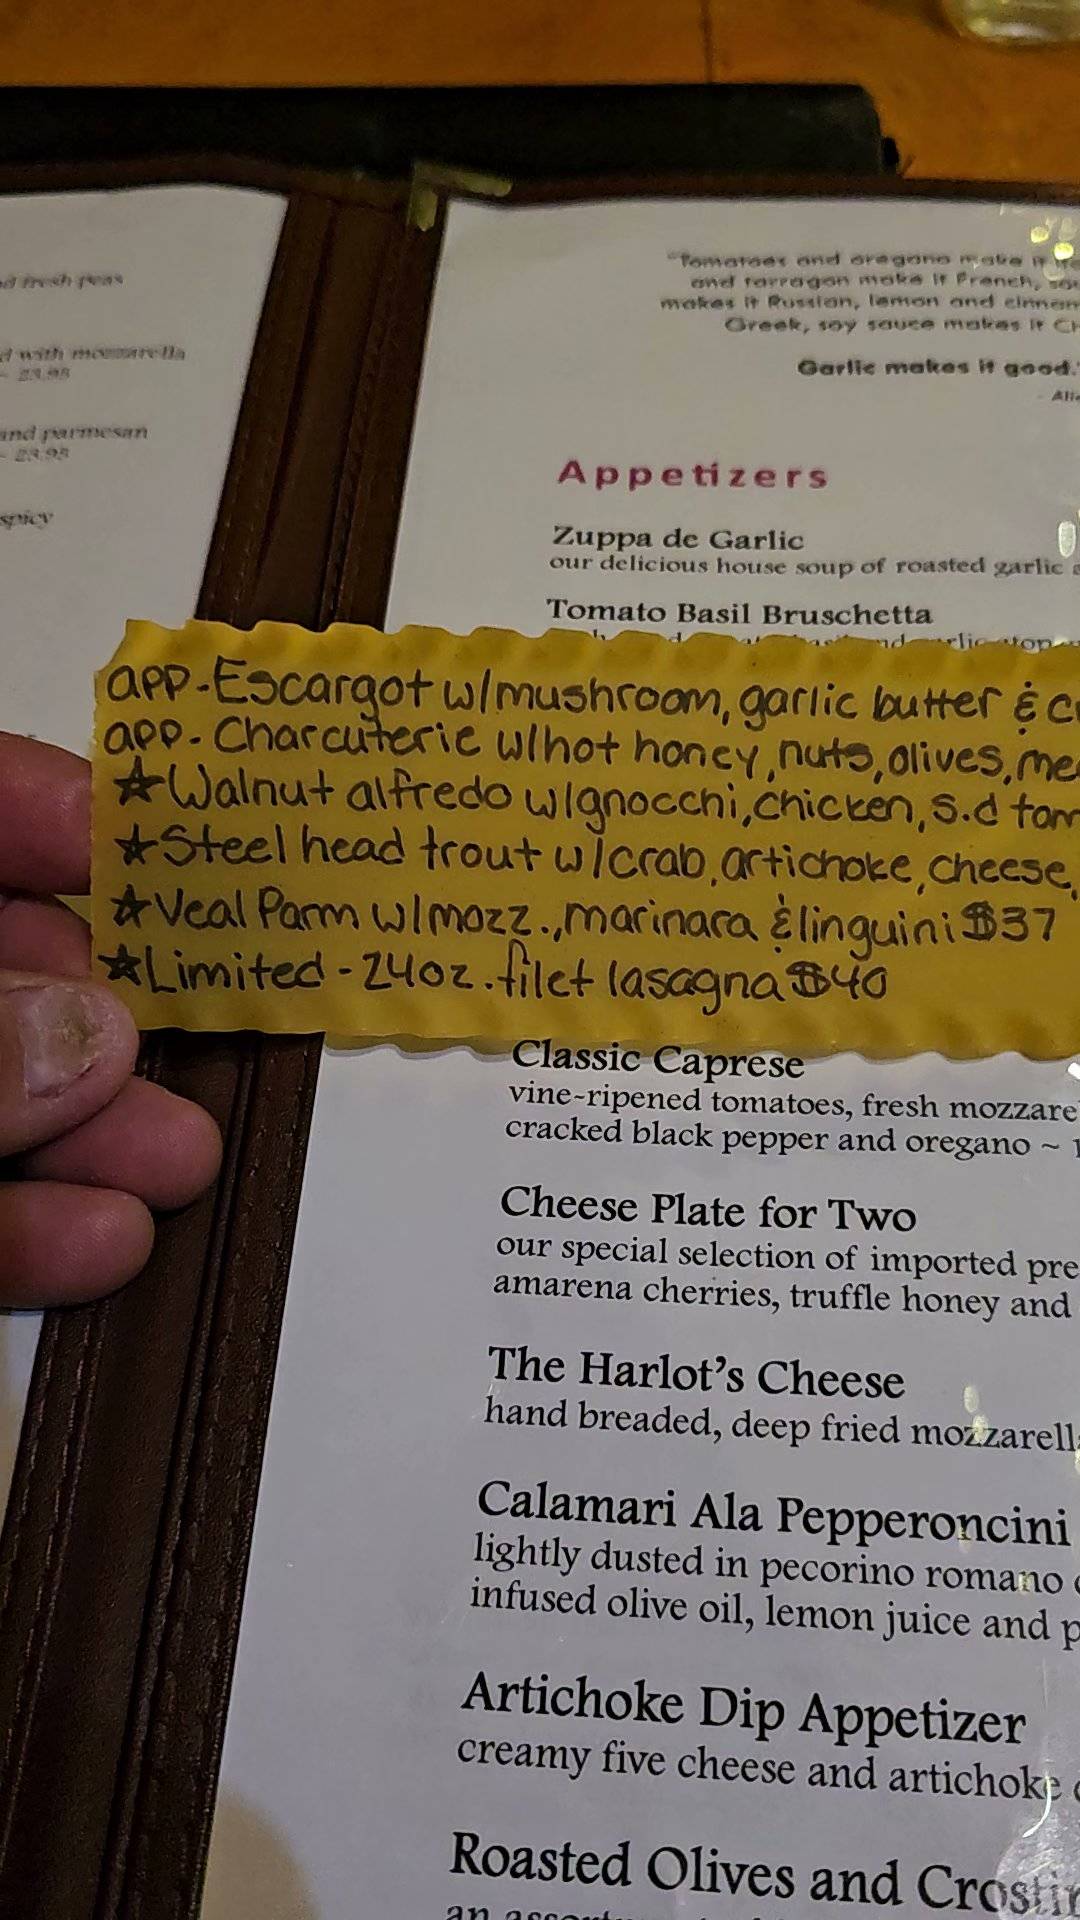 fresh peas
with mozzarella
~ 23.95
and parmesan
~ 23.95
spicy
"Tomatoes and oregano make it
and tarragon make it French,
makes it Russian, lemon and
Greek, soy sauce makes it
Garlic makes it good."
Appetizers
Zuppa de Garlic
our delicious house soup of roasted garlic
Tomato Basil Bruschetta
app-Escargot w/mushroom, garlic butter &
app-Charcuterie w/hot honey, nuts, olives,
☆Walnut alfredo w/gnocchi, chicken, s.d
☆Steel head trout w/crab, artichoke, cheese,
☆Veal Parm w/mozz., marinara & linguini $37
☆Limited - 24oz. filet lasagna $40
Classic Caprese
vine-ripened tomatoes, fresh
cracked black pepper and oregano ~
Cheese Plate for Two
our special selection of imported
amarena cherries, truffle honey and
The Harlot's Cheese
hand breaded, deep fried
Calamari Ala Pepperoncini
lightly dusted in pecorino romano
infused olive oil, lemon juice and
Artichoke Dip Appetizer
creamy five cheese and artichoke
Roasted Olives and
an